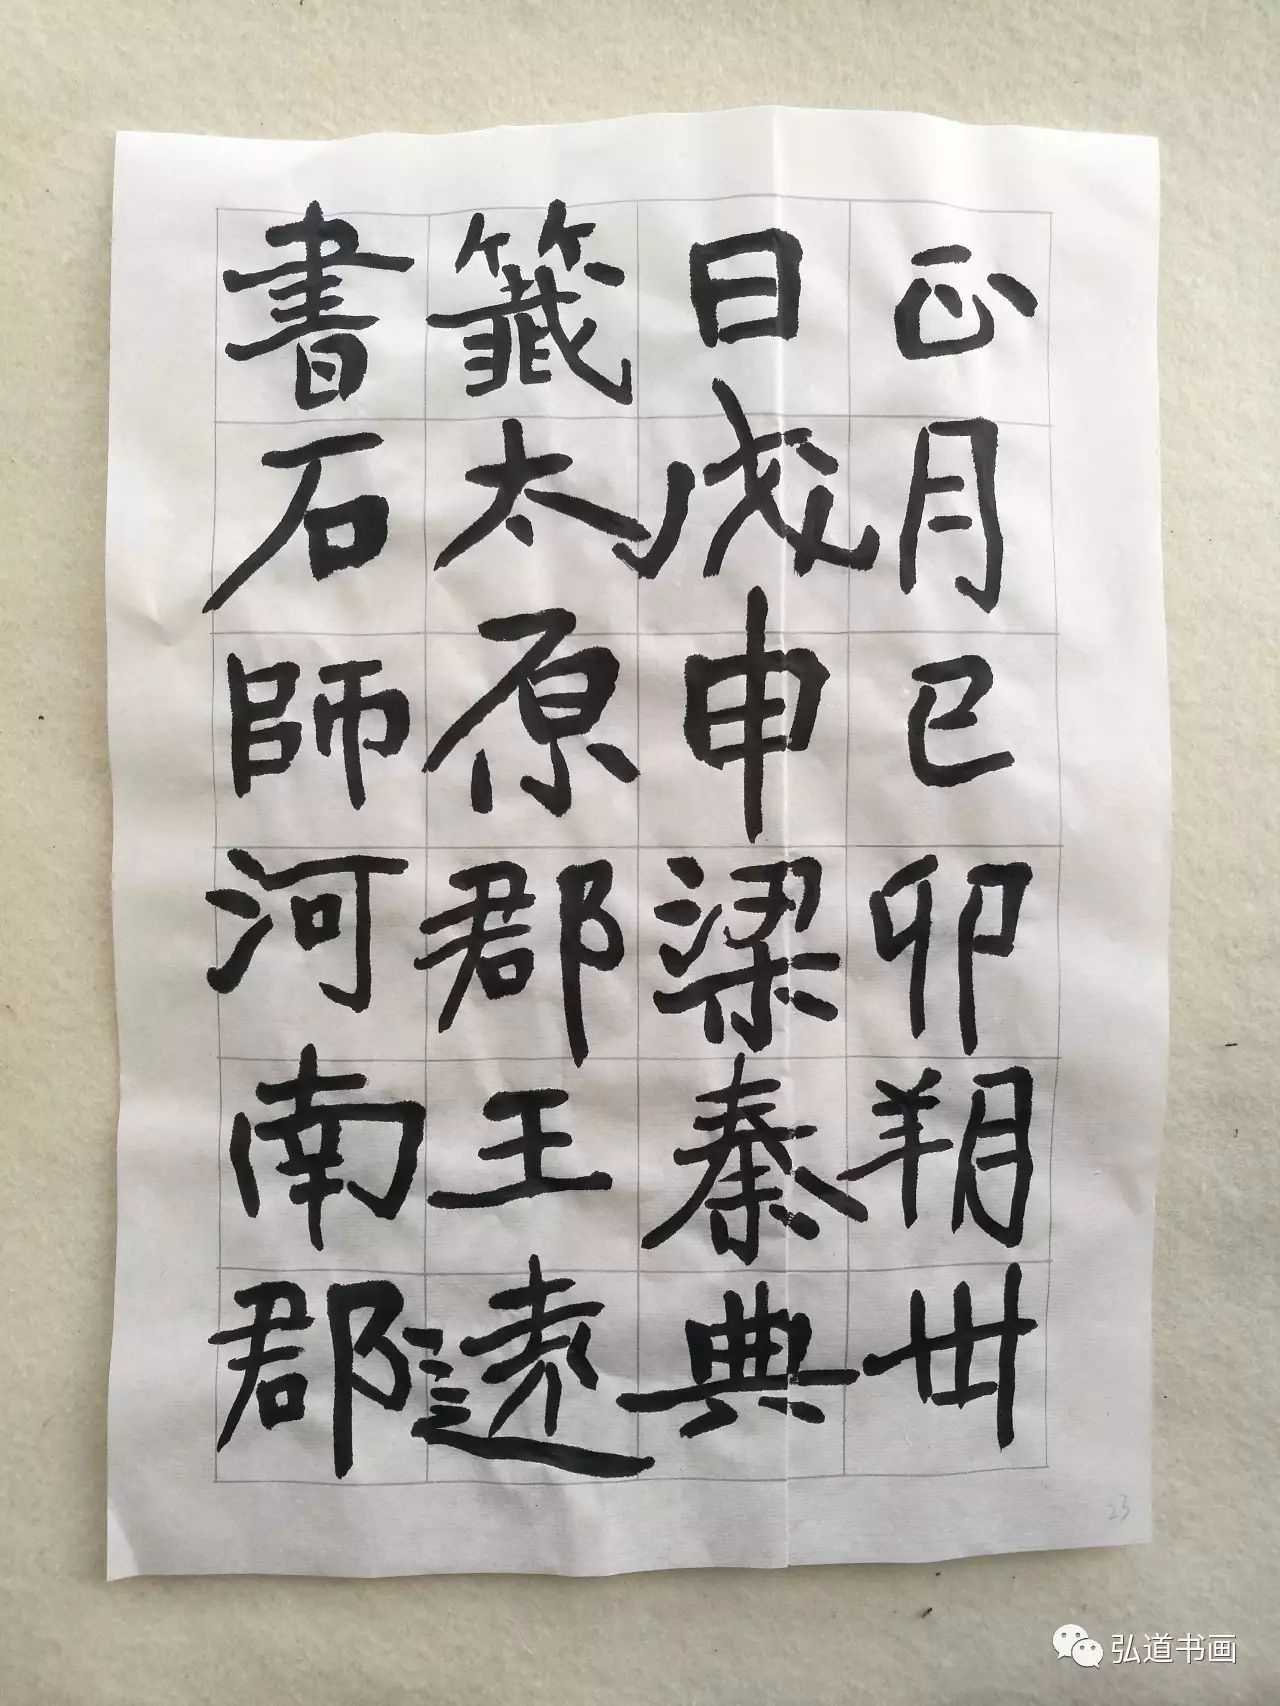 正月己卯朔卅
日戊申梁秦典
籤太原郡王遠
書石師河南郡
23
弘道书画